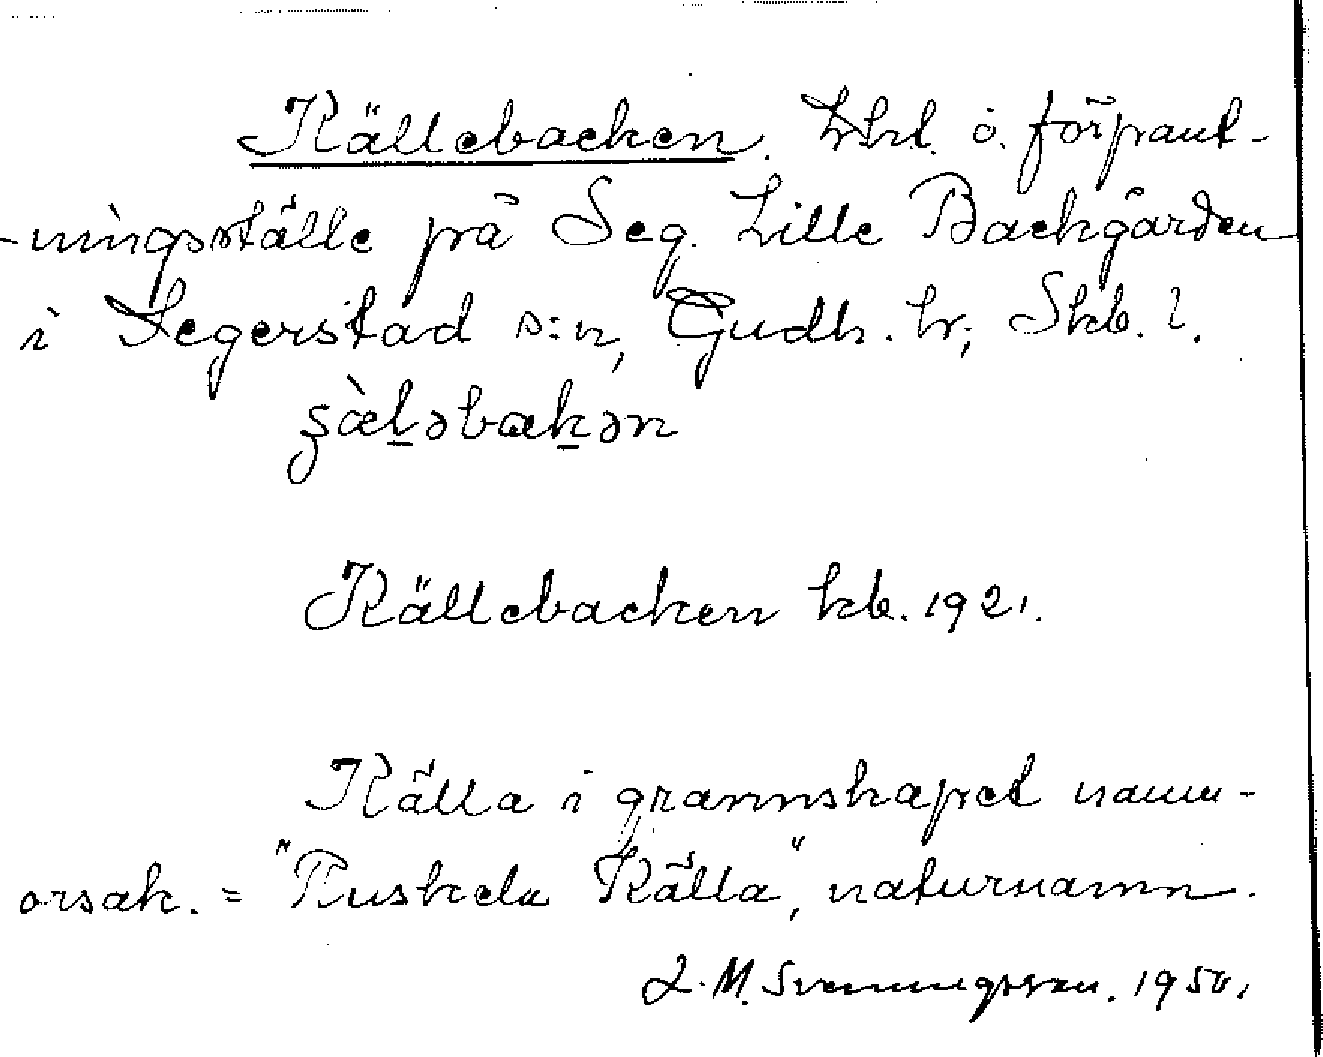 Källebacken. Lht. o. förpant-
-ningsställe på Seg. Lille Backgården
i Segerstad s:n, Gudh. hr, Skb. l.
Källebacken kb. 1921.
Källa i grannskapet namn-
orsak. = "Ruskela Källa", naturnamn.
L. M. Svenungsson. 1950.